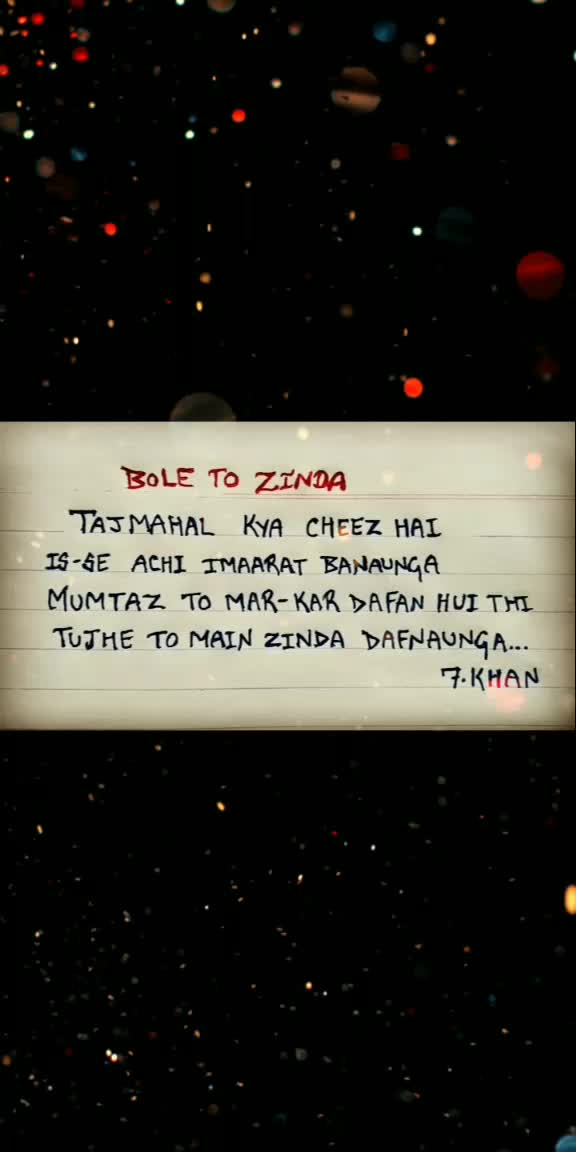 BOLE TO ZINDA
TAJMAHAL KYA CHEEZ HAI
IS-SE ACHI IMAARAT BANAUNGA
MUMTAZ TO MAR-KAR DAFAN HUI THI
TUJHE TO MAIN ZINDA DAFNAUNGA...
7.KHAN